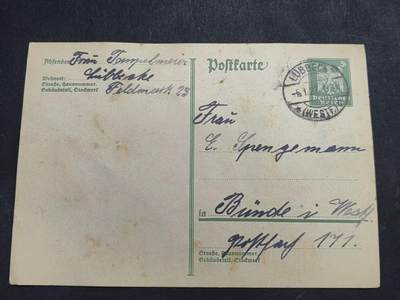 Absender: Frau Tempelmeier
Lübbecke
Wohnort:
Straße, Hausnummer,
Gebäudeteil, Stockwerk
Feldmark 23
Postkarte
LÜBBECKE
(WESTF.)
Deutsches
Reich
Frau
E. Spengemann
in Bünde i. Westf.
Postfach 171.
Straße, Hausnummer,
Gebäudeteil, Stockwerk